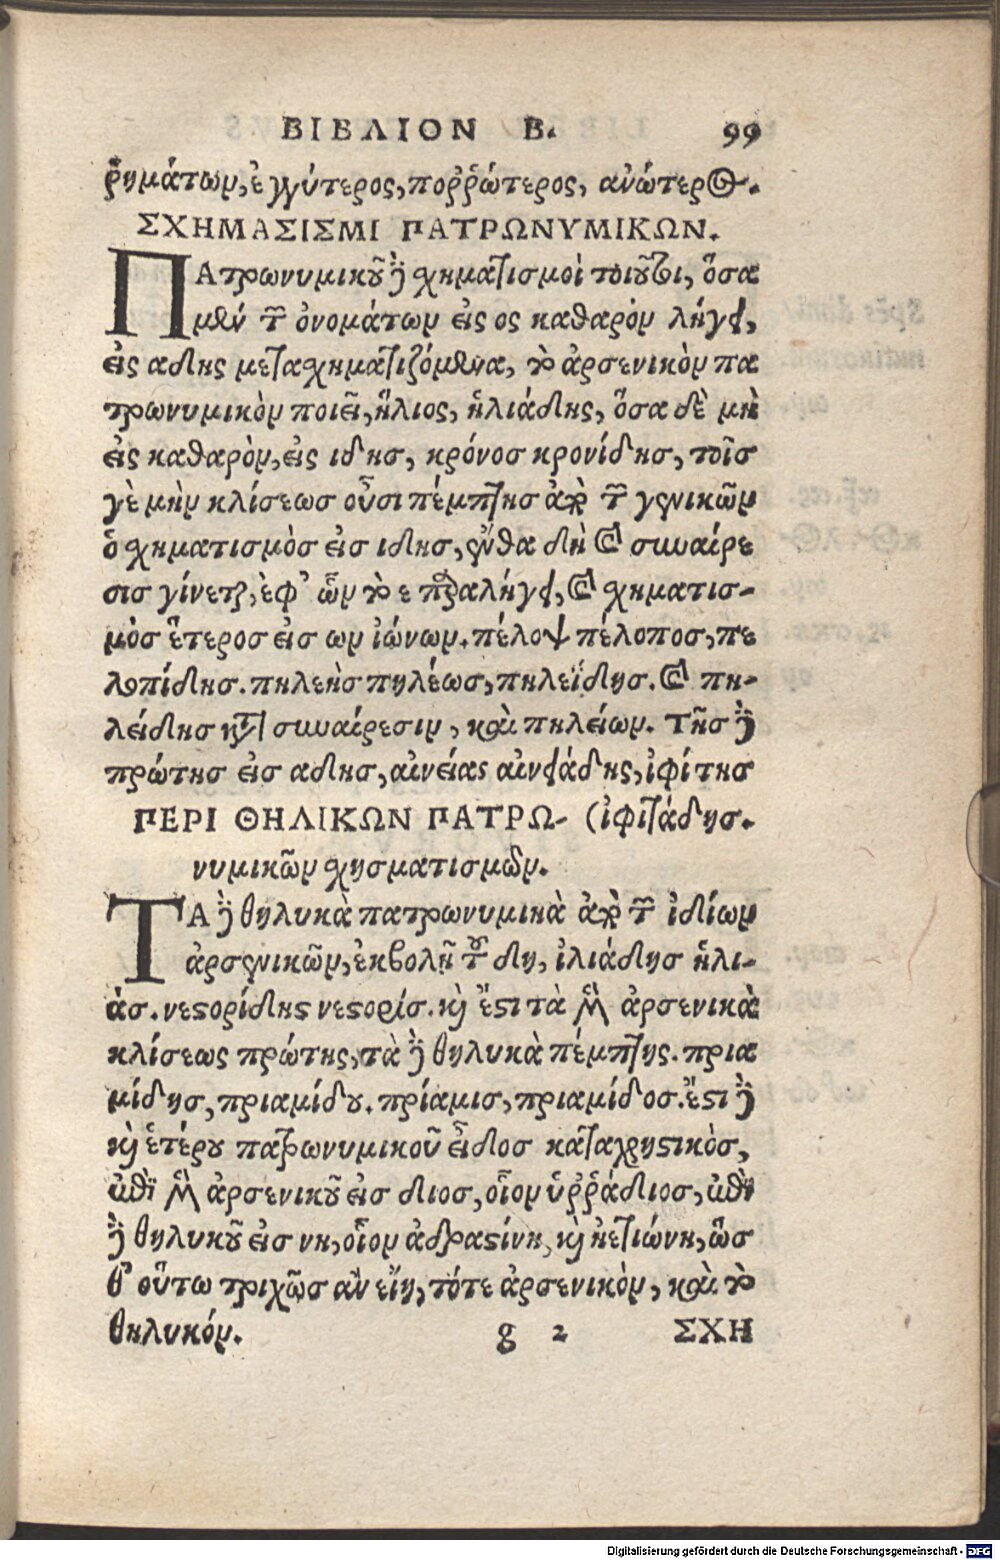 ΒΙΒΛΙΟΝ Β. 99
ῥημάτων, ἐγγύτερος, ποῤῥώτερος, ἀνώτερος.
ΣΧΗΜΑΣΙΣΜΙ ΠΑΤΡΩΝΥΜΙΚΩΝ.
ΠΑτρωνυμικοῦ δὲ χηματισμοὶ τοιοῦτοι, ὅσα
μὲν τῶν ὀνομάτων εἰς ος καθαρὸν λήγει,
εἰς αδης μεταχηματιζόμενα, τὸ ἀρσενικὸν πα
τρωνυμικὸν ποιεῖ, ἥλιος, ἡλιάδης, ὅσα δὲ μὴ
εἰς καθαρὸν, εἰς ιδησ, κρόνοσ κρονίδησ, τοῖσ
γὲ μὴν κλίσεωσ οὖσι πέμπτησ ἀπὸ τῶν γενικῶν
ὁ χηματισμὸσ εἰσ ιδησ, ἔνθα δὴ καὶ συναίρε
σισ γίνεται, ἐφ᾽ ὧν τὸ ε παραλήγει, καὶ χηματισ-
μὸσ ἕτεροσ εἰσ ων ἰώνων. πέλοψ πέλοποσ, πε
λοπίδησ. πηλεὴσ πηλέωσ, πηλεΐδησ. καὶ πη-
λείδησ κατὰ συναίρεσιν, καὶ πηλείων. Τῆσ δὲ
πρώτησ εἰσ αδησ, αἰνείας αἰνειάδης, ἰφίτησ
ΠΕΡΙ ΘΗΛΙΚΩΝ ΠΑΤΡΩ- (ἰφιτάδησ.
νυμικῶν χησματισμῶν.
ΤΑ δὲ θηλυκὰ πατρωνυμικὰ ἀπὸ τῶν ἰδίων
ἀρσενικῶν, ἐκβολῇ τοῦ δη, ἰλιάδησ ἡλι-
άσ. νεστορίδης νεστορίσ. καὶ ἔστι τὰ μὲν ἀρσενικὰ
κλίσεως πρώτης, τὰ δὲ θηλυκὰ πέμπτης. πρια
μίδησ, πριαμίδου. πρίαμισ, πριαμίδοσ. ἔστι δὲ
καὶ ἑτέρου πατρωνυμικοῦ εἶδοσ καταχρηστικὸσ,
ἐπὶ μὲν ἀρσενικοῦ εἰσ διοσ, οἷον ὑῤῥάδιοσ, ἐπὶ
δὲ θηλυκοῦ εἰσ νη, οἷον ἀδραστίνη, καὶ ἠετιώνη, ὥσ
θ᾽ οὕτω τριχῶσ ἂν εἴη, τότε ἀρσενικὸν, καὶ τὸ
θηλυκόν. g 2 ΣΧΗ